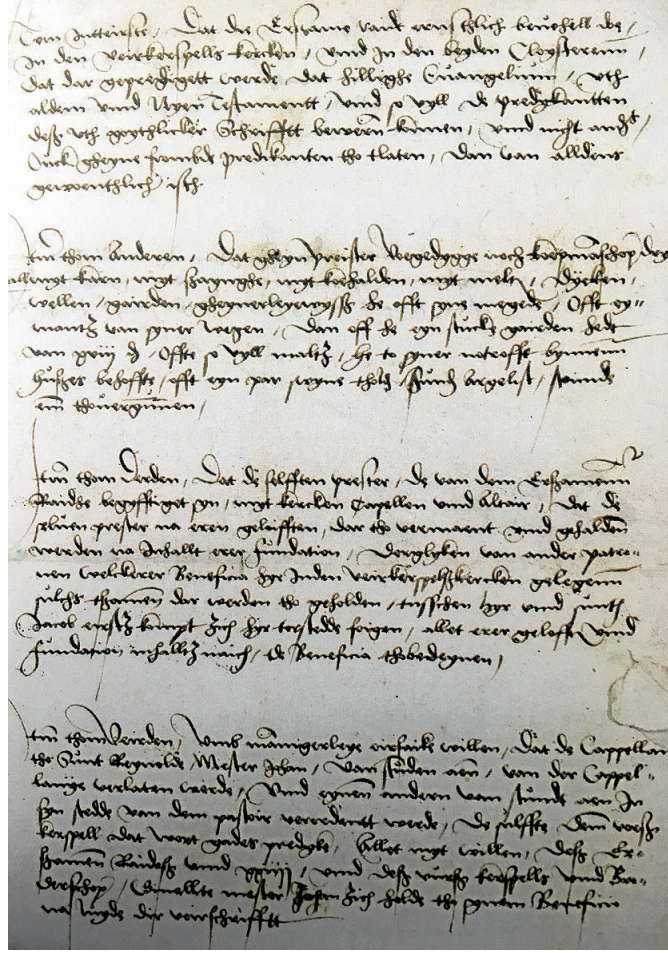 Tom irsten, Dat die Ersame raidt ernstlich bevehell doe,
In den veirkerspells kercken, vund In den beyden Cloysterenn,
dat dar gepredigett werde, dat hillighe Euangelium, vth
aldem vnnd Nyen Testamentt, vnnd so vyll de predykantten
deß vth goythlicker Schrifftt beweren können, vund nicht anders,
Ouck gheyne frombde predikanten tho tlaten, dan van alldens
gewoenthlich isth
Item thom Anderen, Dat gheyn preister noch koepmaschop dryve
nyt korn, nyt nyt koehalden, nyt melck, Dycken,
wellen, gairden, he offt syne megede, Offt ey-
mantz van syner wegen, Dan off he eyn stucke gairden hedde
van xviij d, Offte so vyll maltz, he to syner notrofft bynnenn
hußes behoffte, offt eyn par swyne Sund Argelist,
em thovergunnen,
Item thom Derden, Dat de selfften prester, De van dem Ersamenn
Raidhe begyfftiget syn, myt kercken Capellen vnnd Altair, Dat de
seluen prester na eren geloifften, dar tho vermaent vnd gehalden
werden na Inhallt erer fundation, Dergelyken van ander patro-
nen welckerer Beneficia hyr Inden veirkerspellskercken gelegenn
dar werden tho geholden, tusschen hyr vnnd sunth
Jacob erstz kumpt Zich hyr torstedde foigen, allet erer geloffte vnnd
fundation inhalltz naich, de Beneficia thobedeynen,
Item thom Veirden, Vmb mannigerleye oirsaike willen, Dat de Cappellan
tho Sunt Reynolde Mester Johan, van stunden aen, van der Cappel-
lanije verlaten werde, Vnnd eynen andern van stunde aen In
syn stedde van dem pastoir verordenett werde, De sulffte dem vorß
kerspell dat wort gades predyke, Allet myt willen, deß Er-
samenn Raideß vnnd xxiiij, vnnd deß vurß kerspells vnnd Bur-
derschop, mester Johan Zich holde tho synem Beneficio
na luyde dir voirschrifftt